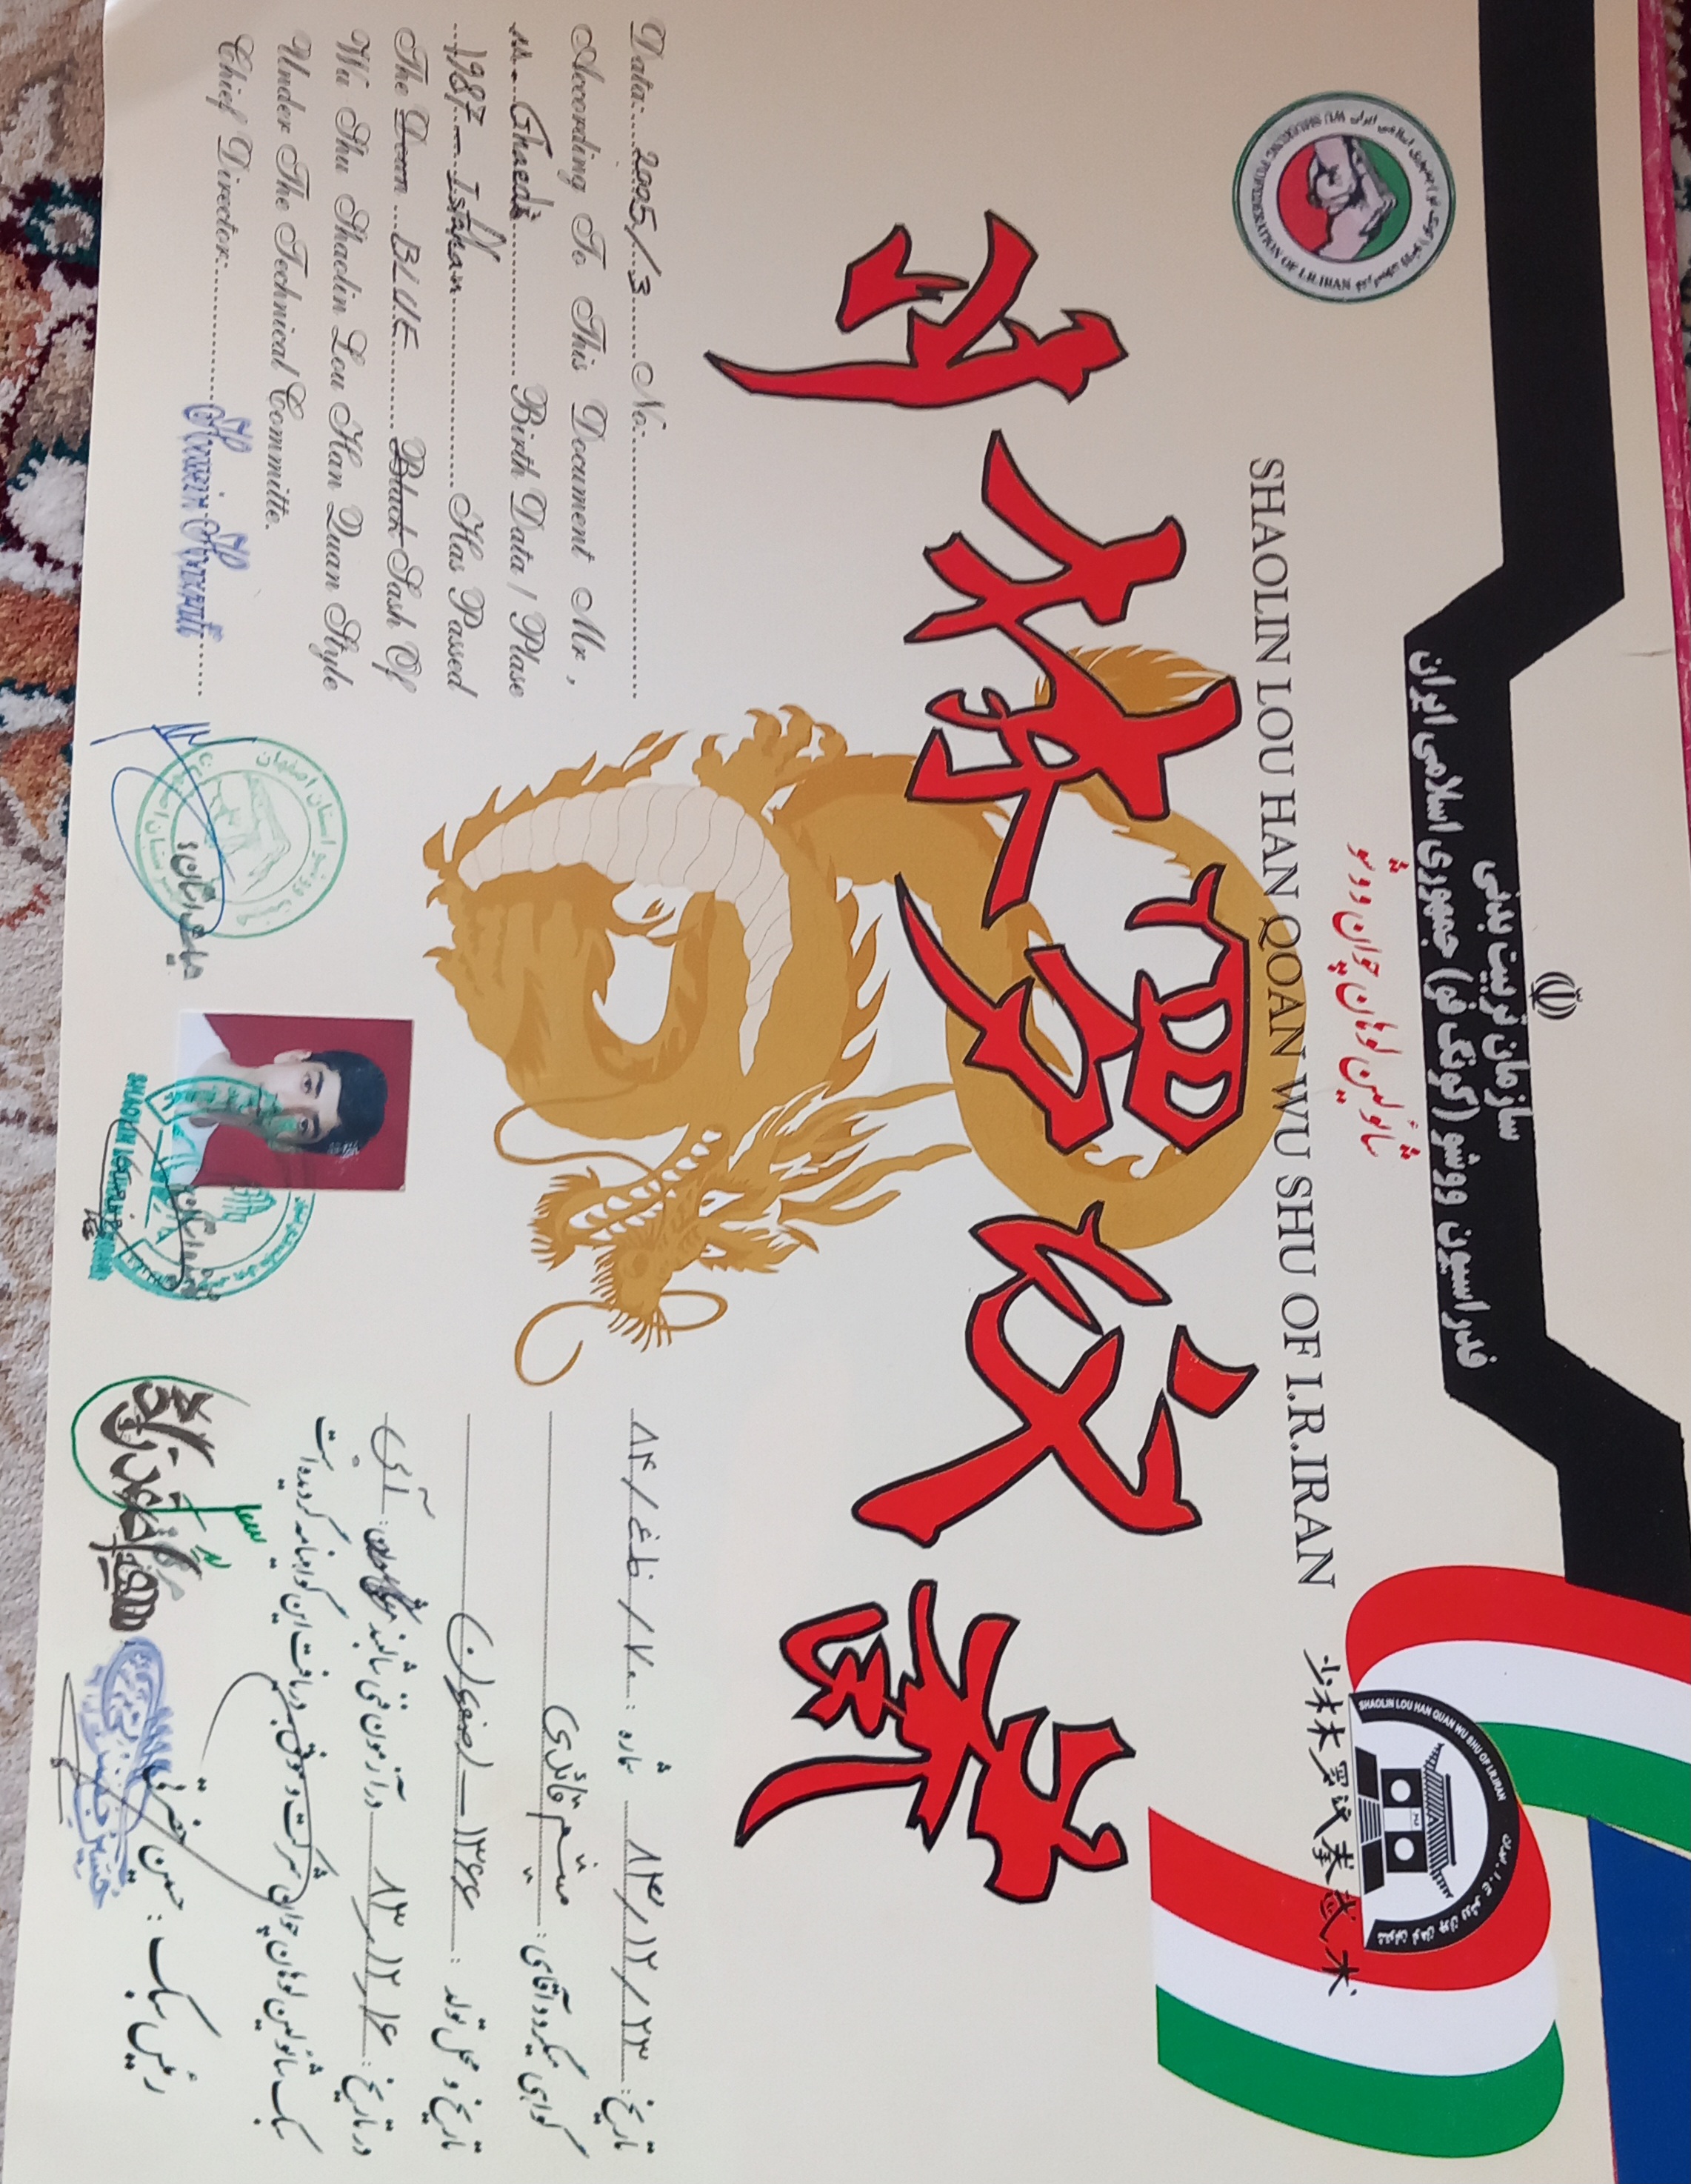 سازمان تربیت بدنی
فدراسیون ووشو (کونگ فو) جمهوری اسلامی ایران
شائولین لوهان چوان ووشو
SHAOLIN LOU HAN QOAN WU SHU OF I.R.IRAN
WU SHU(KUNG FU)FEDERATION OF I.R.IRAN
SHAOLIN LOU HAN QUAN WU SHU OF I.R.IRAN
少林罗汉拳武术
少林罗汉拳
Data:....2005/3.....No:
According To This Document Mr,
M. Ghaedi Birth Data / Plase
1987 - Isfahan Has Passed
The Doun BLUE Black Sash Of
Wu Shu Shaolin Lou Han Quan Style
Under The Technical Committe.
Chief Director:
تاریخ: ۸۳/۱۲/۲۳ شماره: ۷۰/ /۸۴
گواهی میگردد آقای: میثم قائدی
تاریخ و محل تولد: ۱۳۶۶ - اصفهان
در تاریخ: ۸۳/۱۲/۱۶ در آزمون فنی شالبند آبی
سبک شائولین لوهان چوان شرکت و موفق بدریافت این گواهینامه گردیده است
رئیس سبک: حسین